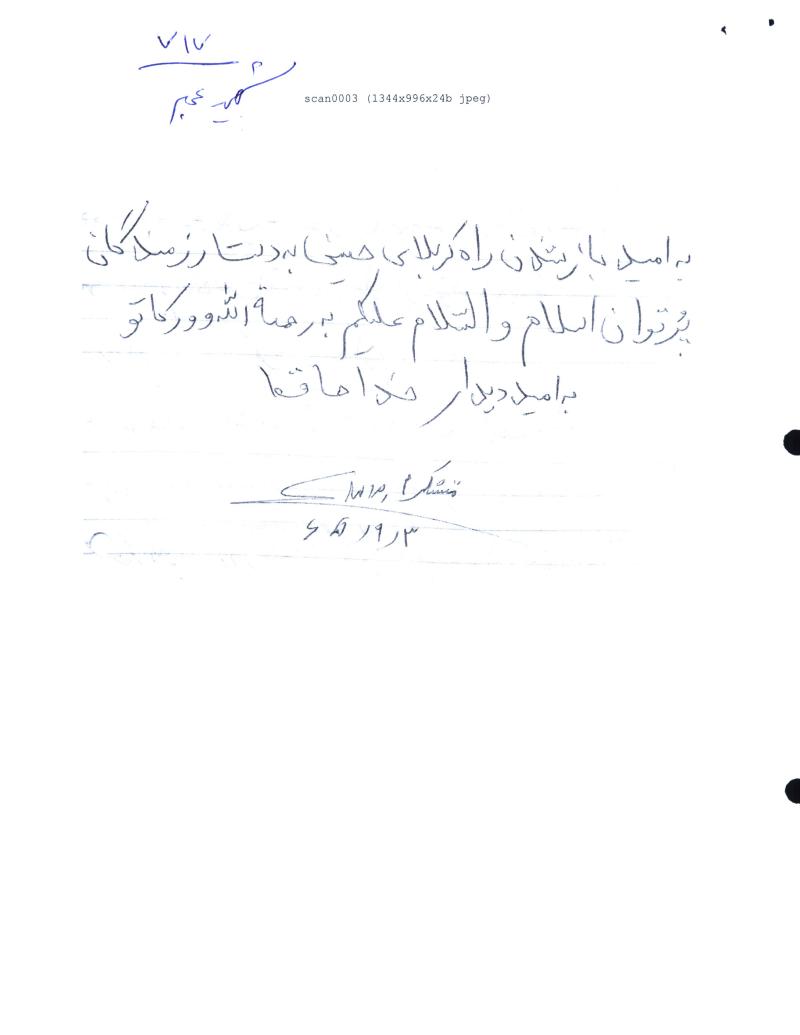 ۷۱۷
scan0003 (1344x996x24b jpeg)
به امید باز شدن راه کربلای حسینی به دست رزمندگان
پرتوان اسلام والسلام علیکم به رحمة الله و ورکاتو
به امید دیدار خداحافقا
متشکرم